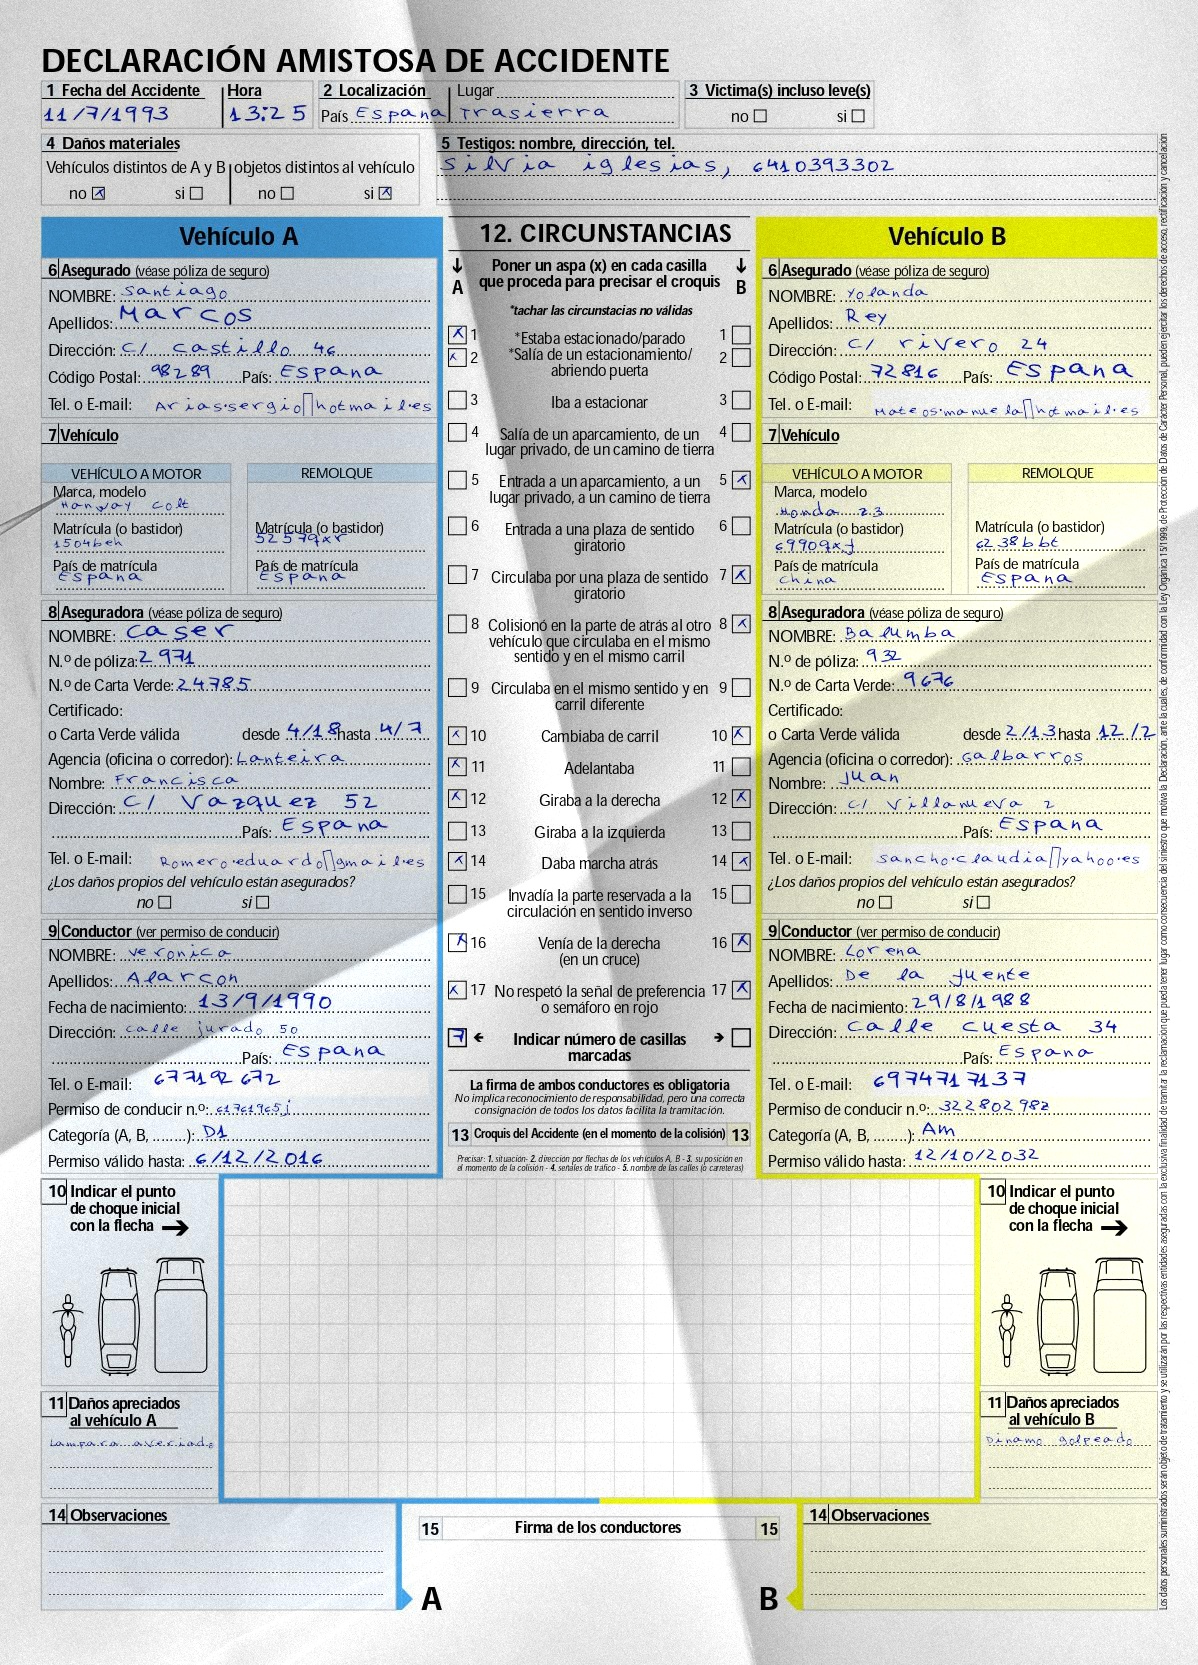 DECLARACIÓN AMISTOSA DE ACCIDENTE
1 Fecha del Accidente Hora 2 Localización Lugar 3 Victima(s) incluso leve(s)
11/7/1993 13:25 País Espana Trasierra no si
4 Daños materiales 5 Testigos: nombre, dirección, tel.
Vehículos distintos de A y B objetos distintos al vehículo Silvia iglesias, 6410393302
no x si no si x
Vehículo A
6 Asegurado (véase póliza de seguro)
NOMBRE: Santiago
Apellidos: Marcos
Dirección: C/ castillo 46
Código Postal: 98289 País: Espana
Tel. o E-mail: Arias.sergio▯hotmail.es
7 Vehículo
VEHÍCULO A MOTOR REMOLQUE
Marca, modelo
Hanway colt
Matrícula (o bastidor) Matrícula (o bastidor)
1504beh 52579xr
País de matrícula País de matrícula
Espana Espana
8 Aseguradora (véase póliza de seguro)
NOMBRE: caser
N.º de póliza: 2971
N.º de Carta Verde: 24785
Certificado:
o Carta Verde válida desde 4/18 hasta 4/7
Agencia (oficina o corredor): Lanteira
Nombre: Francisca
Dirección: C/ Vazquez 52
País: Espana
Tel. o E-mail: Romero.eduardo▯gmail.es
¿Los daños propios del vehículo están asegurados?
no si
9 Conductor (ver permiso de conducir)
NOMBRE: veronica
Apellidos: Alarcon
Fecha de nacimiento: 13/9/1990
Dirección: calle jurado 50
País: Espana
Tel. o E-mail: 677192672
Permiso de conducir n.º: 61761965j
Categoría (A, B, ........): D1
Permiso válido hasta: 6/12/2016
12. CIRCUNSTANCIAS
A Poner un aspa (x) en cada casilla que proceda para precisar el croquis B
*tachar las circunstacias no válidas
x 1 *Estaba estacionado/parado 1
x 2 *Salía de un estacionamiento/ 2
abriendo puerta
3 Iba a estacionar 3
4 Salía de un aparcamiento, de un 4
lugar privado, de un camino de tierra
5 Entrada a un aparcamiento, a un 5 x
lugar privado, a un camino de tierra
6 Entrada a una plaza de sentido 6
giratorio
7 Circulaba por una plaza de sentido 7 x
giratorio
8 Colisionó en la parte de atrás al otro 8 x
vehículo que circulaba en el mismo
sentido y en el mismo carril
9 Circulaba en el mismo sentido y en 9
carril diferente
x 10 Cambiaba de carril 10 x
x 11 Adelantaba 11
x 12 Giraba a la derecha 12 x
13 Giraba a la izquierda 13
x 14 Daba marcha atrás 14 x
15 Invadía la parte reservada a la 15
circulación en sentido inverso
x 16 Venía de la derecha 16 x
(en un cruce)
x 17 No respetó la señal de preferencia 17 x
o semáforo en rojo
7 ← Indicar número de casillas →
marcadas
La firma de ambos conductores es obligatoria
No implica reconocimiento de responsabilidad, pero una correcta
consignación de todos los datos facilita la tramitación.
13 Croquis del Accidente (en el momento de la colisión) 13
Precisar: 1. situación- 2. dirección por flechas de los vehículos A, B - 3. su posición en
el momento de la colisión - 4. señales de tráfico - 5. nombre de las calles (o carreteras)
Vehículo B
6 Asegurado (véase póliza de seguro)
NOMBRE: Yolanda
Apellidos: Rey
Dirección: C/ rivero 24
Código Postal: 72816 País: Espana
Tel. o E-mail: Mateos.manuela▯hotmail.es
7 Vehículo
VEHÍCULO A MOTOR REMOLQUE
Marca, modelo
Honda z3
Matrícula (o bastidor) Matrícula (o bastidor)
69909xf 6238bbt
País de matrícula País de matrícula
china Espana
8 Aseguradora (véase póliza de seguro)
NOMBRE: Balumba
N.º de póliza: 932
N.º de Carta Verde: 9676
Certificado:
o Carta Verde válida desde 2/13 hasta 12/2
Agencia (oficina o corredor): Galbarros
Nombre: Juan
Dirección: C/ Villanueva 2
País: Espana
Tel. o E-mail: Sancho.claudia▯yahoo.es
¿Los daños propios del vehículo están asegurados?
no si
9 Conductor (ver permiso de conducir)
NOMBRE: Lorena
Apellidos: De la fuente
Fecha de nacimiento: 29/8/1988
Dirección: Calle cuesta 34
País: Espana
Tel. o E-mail: 6974717137
Permiso de conducir n.º: 32280298z
Categoría (A, B, ........): Am
Permiso válido hasta: 12/10/2032
10 Indicar el punto
de choque inicial
con la flecha →
11 Daños apreciados
al vehículo A
Lampara averiado
14 Observaciones
15 Firma de los conductores 15
A B
10 Indicar el punto
de choque inicial
con la flecha →
11 Daños apreciados
al vehículo B
Dinamo golpeado
14 Observaciones
Los datos personales suministrados serán objeto de tratamiento y se utilizarán por las respectivas entidades aseguradas con la exclusiva finalidad de tramitar la reclamación que pueda tener lugar como consecuencia del siniestro que motiva la Declaración, ante la cuales, de conformidad con la Ley Orgánica 15/1999, de Protección de Datos de Carácter Personal, pueden ejercitar los derechos de acceso, rectificación y cancelación